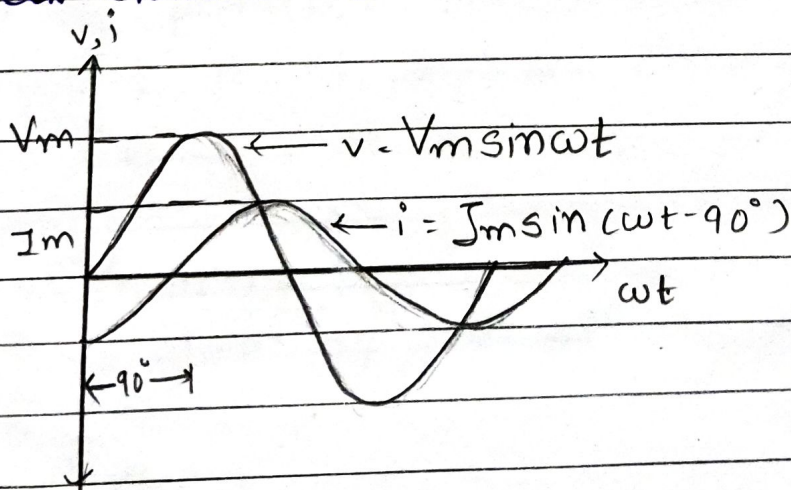 v, i
Vm
v = Vm sin ωt
Im
i = Im sin (ωt - 90°)
ωt
90°